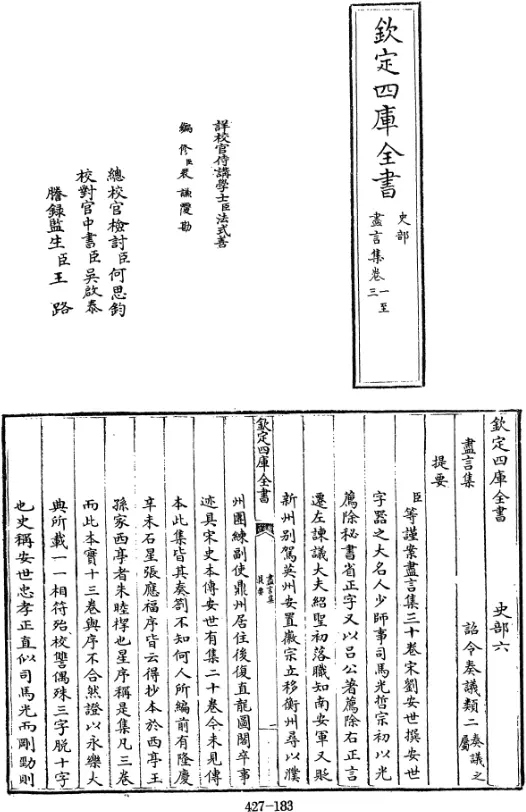 欽定四庫全書
史部
盡言集卷一至三
詳校官侍講學士臣法式善
編修臣裴謙覆勘
總校官檢討臣何思鈞
校對官中書臣吳啟泰
謄錄監生臣王路
欽定四庫全書 史部六
盡言集 詔令奏議類二奏議之屬
提要
臣等謹案盡言集三十卷宋劉安世撰安世
字器之大名人少師事司馬光哲宗初以光
薦除秘書省正字又以呂公著薦除右正言
遷左諫議大夫紹聖初落職知南安軍又貶
新州别駕英州安置徽宗立移衡州尋以濮
欽定四庫全書 盡言集 提要 一
州團練副使鼎州居住後復直龍圖閣卒事
迹具宋史本傳安世有集二十卷今未見傳
本此集皆其奏劄不知何人所編前有隆慶
辛未石星張應福序皆云得抄本於西亭王
孫家西亭者朱睦㮮也星序稱是集凡三卷
而此本實十三卷與序不合然證以永樂大
典所載一一相符殆校讐偶殊三字脱十字
也史稱安世忠孝正直似司馬光而剛勁則
427-183